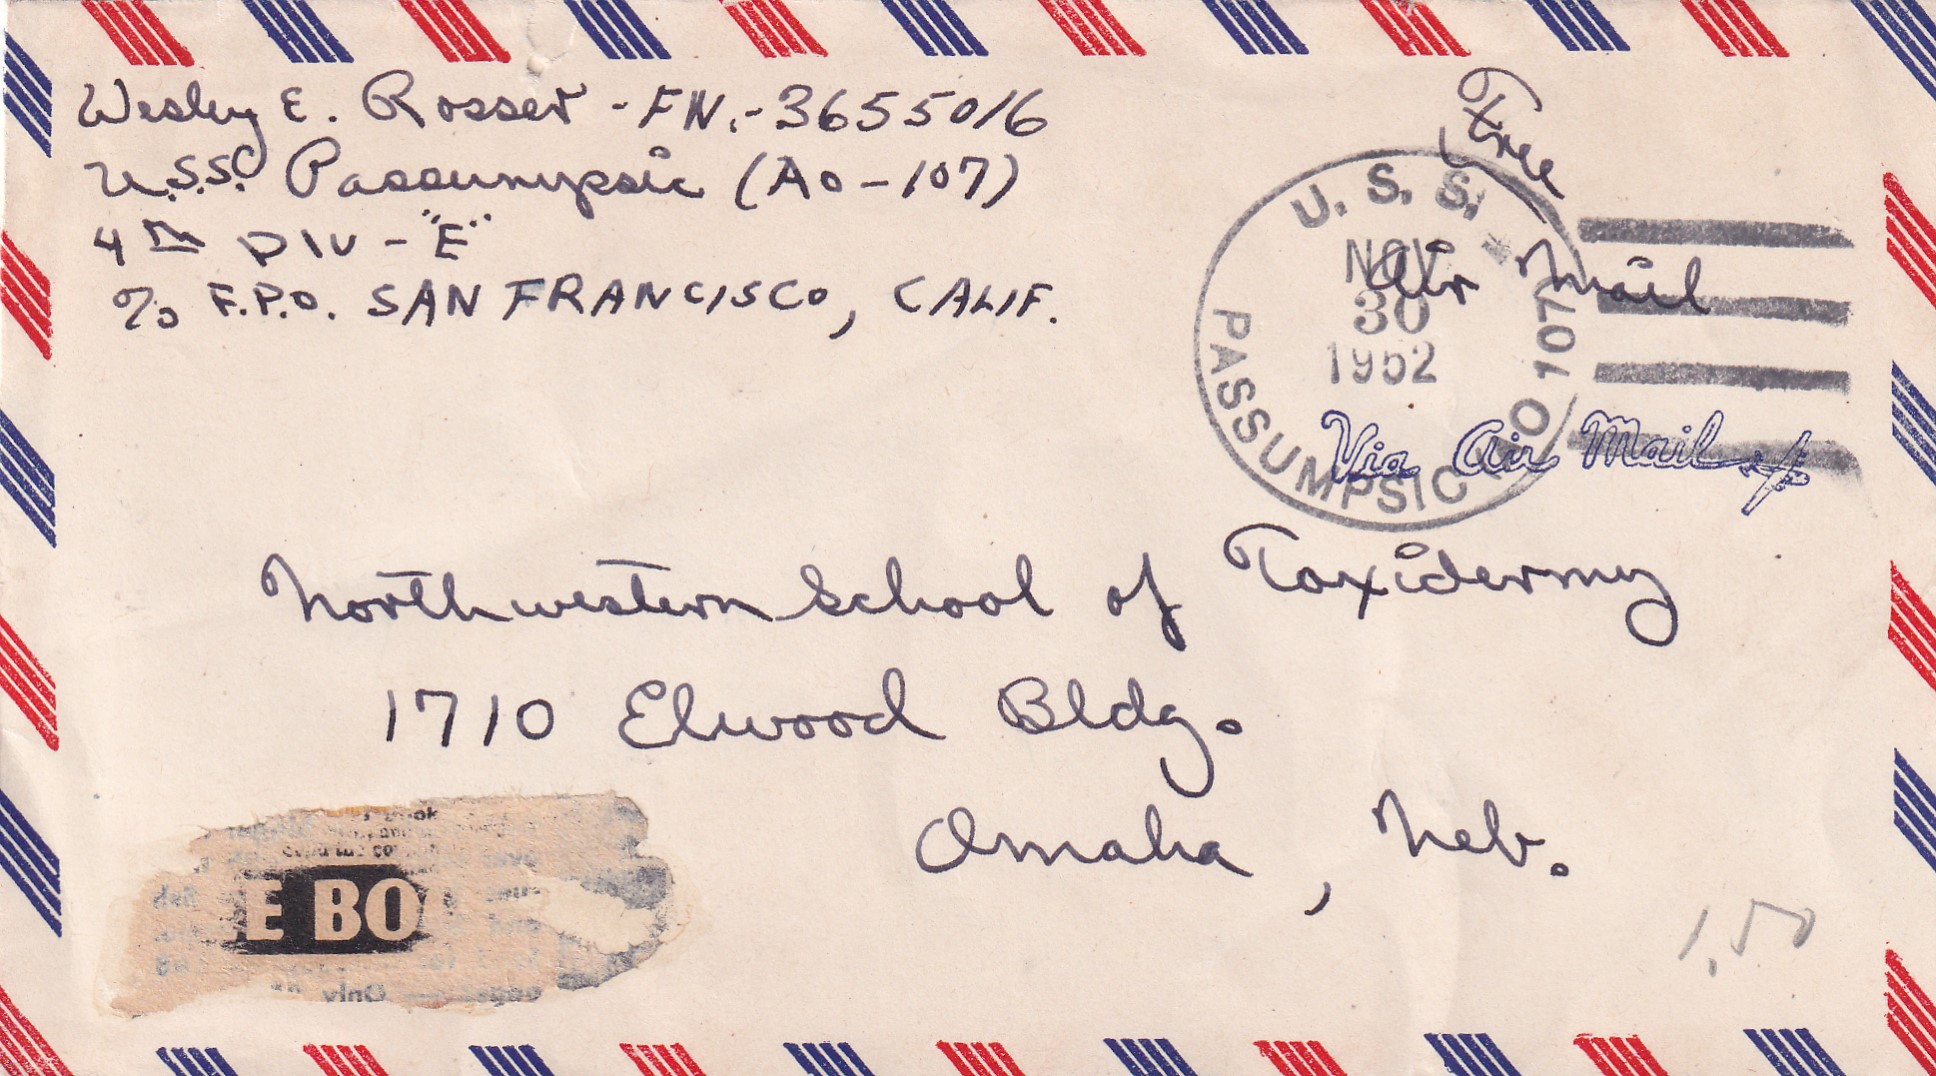 Wesley E. Rosser - FN.-3655016
U.S.S. Passumpsic (AO-107)
4TH DIV-"E"
c/o F.P.O. SAN FRANCISCO, CALIF.
Free
Air Mail
U. S. S.
PASSUMPSIC AO 107
NOV
30
1952
Via Air Mail
Northwestern School of Taxidermy
1710 Elwood Bldg.
Omaha, Neb.
E BO
Only
1.50